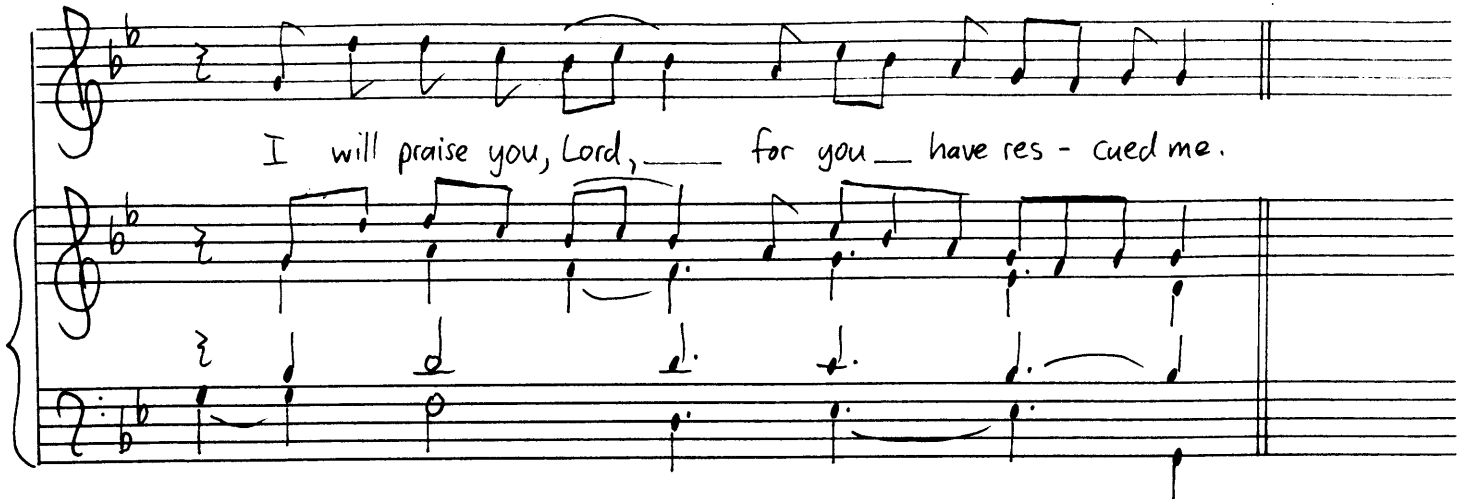 I will praise you, Lord, ____ for you __ have res - cued me.